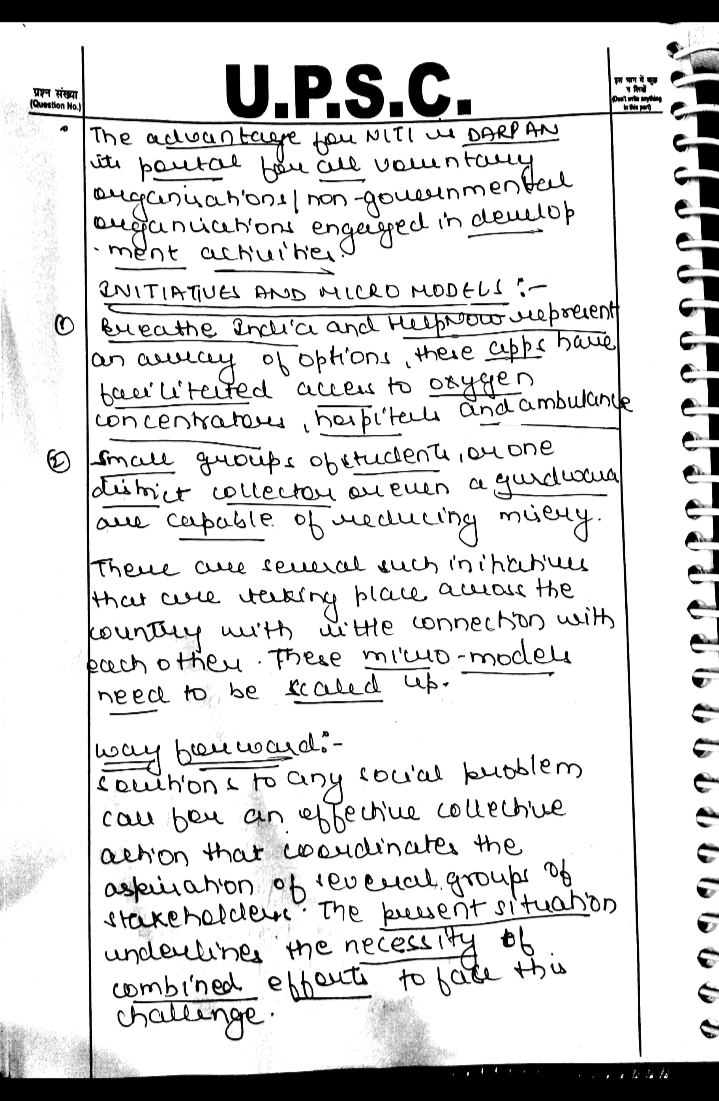 U.P.S.C.
प्रश्न संख्या
(Question No.)
इस भाग में कुछ
न लिखें
(Don't write anything
in this part)
The advantage for NITI is DARPAN
its portal for all voluntary
organisations/non-governmental
organisations engaged in develop
-ment activities.
INITIATIVES AND MICRO MODELS :-
① Breathe India and HelpNow represent
an array of options, these apps have
facilitated access to oxygen
concentrators, hospitals and ambulance
② Small groups of students, or one
district collector or even a gurdwara
are capable of reducing misery.
There are several such initiatives
that are taking place across the
country with little connection with
each other. These micro-models
need to be scaled up.
way forward:-
solutions to any social problem
call for an effective collective
action that coordinates the
aspiration of several groups of
stakeholders. The present situation
underlines the necessity of
combined efforts to face this
challenge.